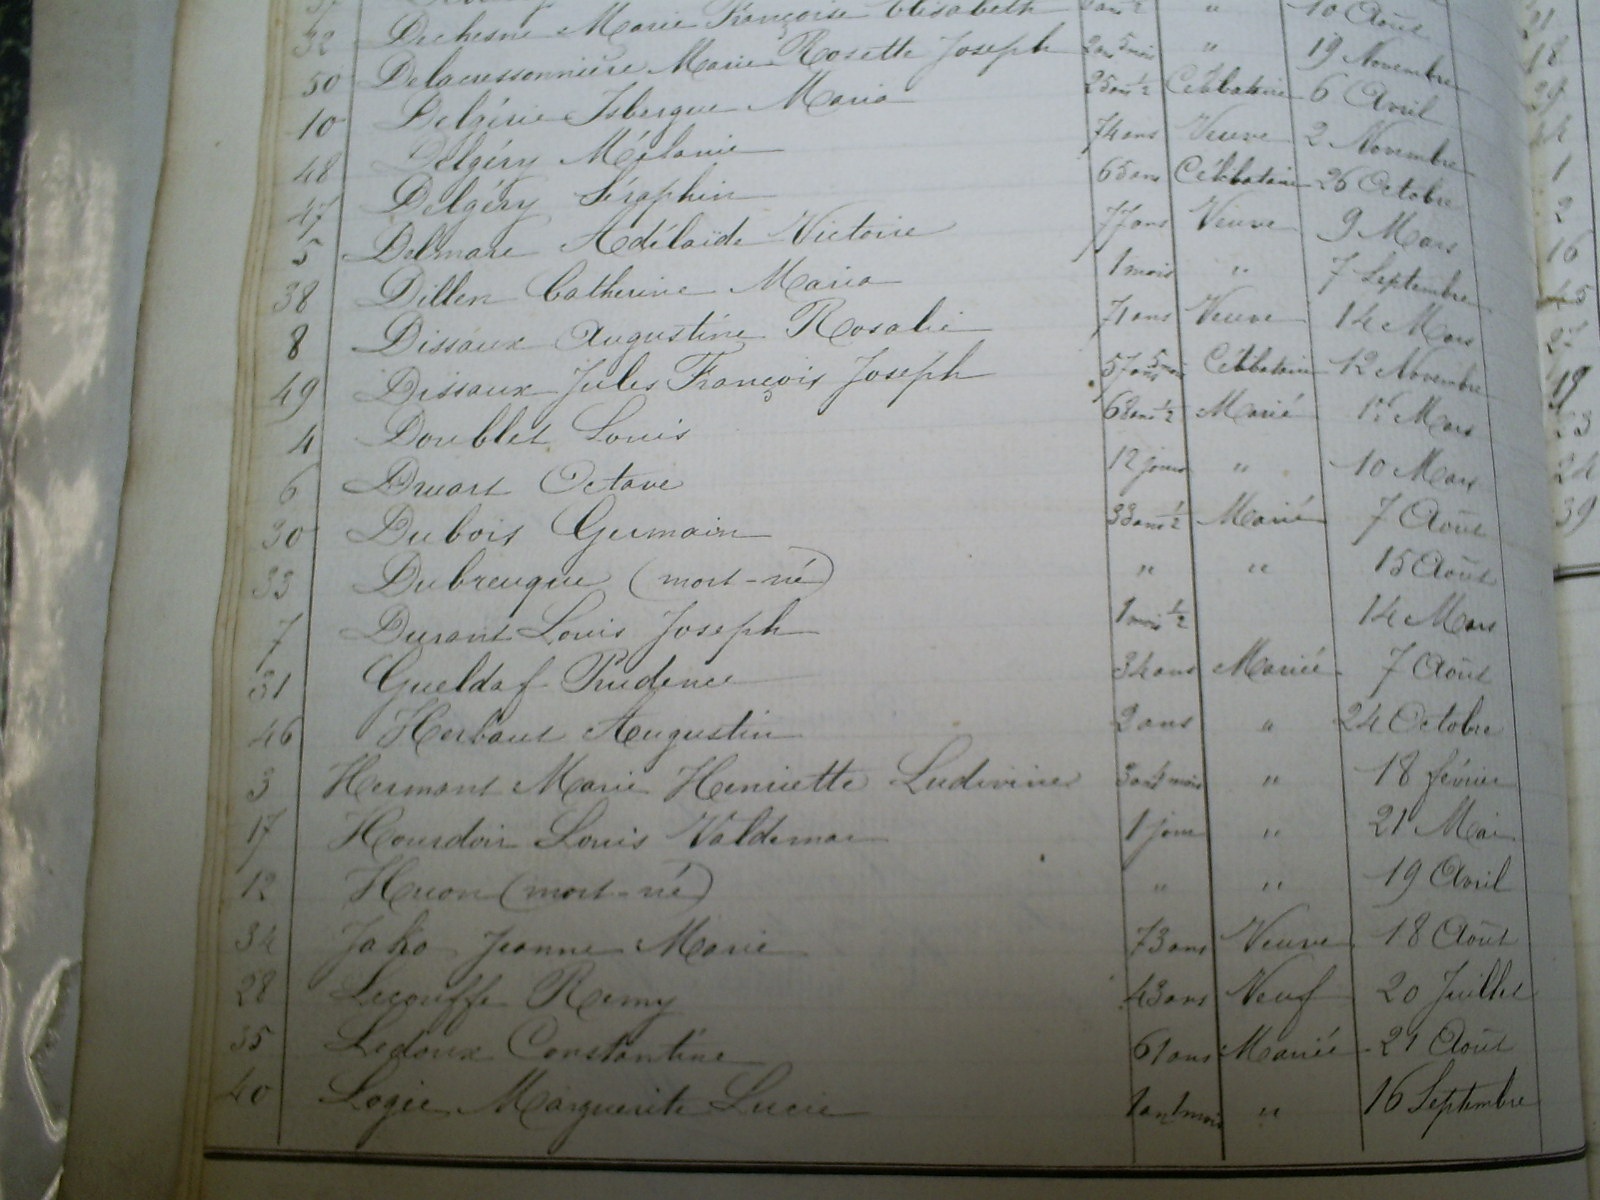 32 Dechesne Marie Françoise Elisabeth " 10 Août
50 Delacressonnière Marie Rosette Joseph 2 ans 5 mois " 19 Novembre
10 Delgérie Isbergue Maria 25 ans ½ Célibataire 6 Avril
48 Delgéry Mélanie 74 ans Veuve 2 Novembre
47 Delgéry Séraphin 65 ans Célibataire 26 Octobre
5 Delmare Adélaïde Victoire 77 ans Veuve 9 Mars
38 Dillen Catherine Maria 1 mois " 7 Septembre
8 Dissaux Augustine Rosalie 71 ans Veuve 14 Mars
49 Dissaux Jules François Joseph 57 ans 5 mois Célibataire 12 Novembre
4 Doublet Louis 62 ans ½ Marié Mars
6 Druart Octave 12 jours " 10 Mars
30 Dubois Germain 33 ans ½ Marié 7 Août
33 Dubreuque (mort-né) " " 15 Août
7 Durant Louis Joseph 1 mois ½ 14 Mars
31 Gueldaf Prudence 34 ans Mariée 7 Août
46 Herbaut Augustin 2 ans " 24 Octobre
3 Hermant Marie Henriette Ludivine 3 ans 4 mois " 18 février
17 Hourdoir Louis Valdemar 1 jour " 21 Mai
12 Huon (mort-né) " " 19 Avril
34 Jako Jeanne Marie 73 ans Veuve 18 Août
28 Lecouffe Remy 43 ans Veuf 20 Juillet
35 Ledoux Constantine 61 ans Mariée 21 Août
40 Logie Marguerite Lucie 1 an 1 mois " 16 Septembre